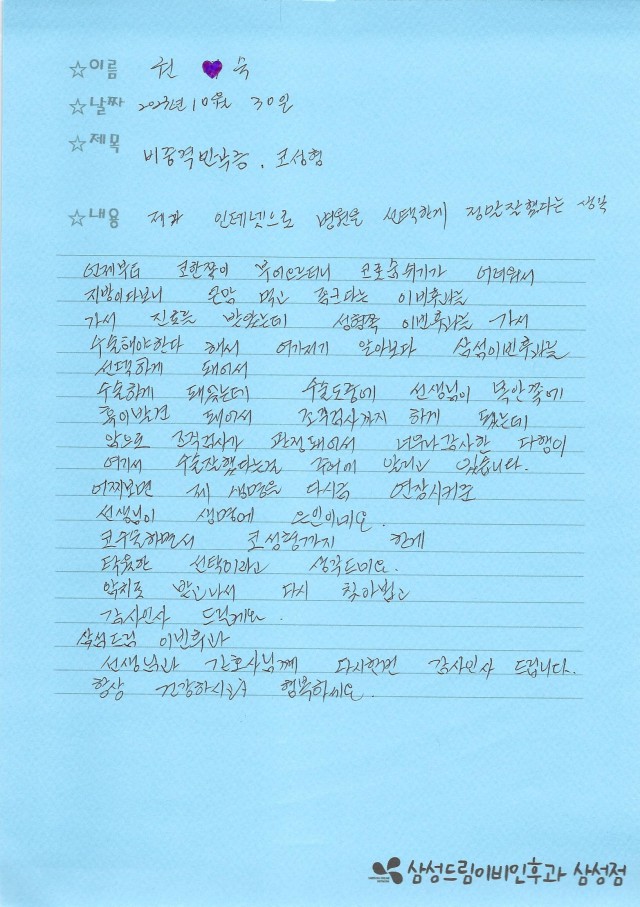 ☆이름 권 💜 숙
☆날짜 2023년 10월 30일
☆제목
비중격만곡증. 코성형
☆내용 제가 인테넷으로 병원을 선택한게 정말잘했다는 생각
언제부터 코한쪽이 휘어서 코로숨쉬기가 어려워서
지방이다보니 큰맘 먹고 좀크다는 이비후과를
가서 진료를 받았는데 성형쪽 이빈후과를 가서
수술해야한다 해서 여기저기 알아보다 삼성이빈후과를
선택하게 돼어서
수술하게 돼있는데 수술도중에 선생님이 목안쪽에
혹이발견 돼어서 조직검사까지 하게 됐는데
암으로 조직검사가 판정돼어서 너무나감사한 다행이
여기서 수술잘했다는걸 주위에 알리고 있습니다.
어찌보면 제 생명을 다시금 연장시켜준
선생님이 생명에 은인이네요.
코수술하면서 코성형까지 한게
탁월한 선택이라고 생각드네요.
암치료 받고나서 다시 찾아뵙고
감사인사 드릴께요.
삼성드림 이빈후과
선생님과 간호사님께 다시한번 감사인사 드립니다.
항상 건강하시고 행복하세요.
삼성드림이비인후과 삼성점